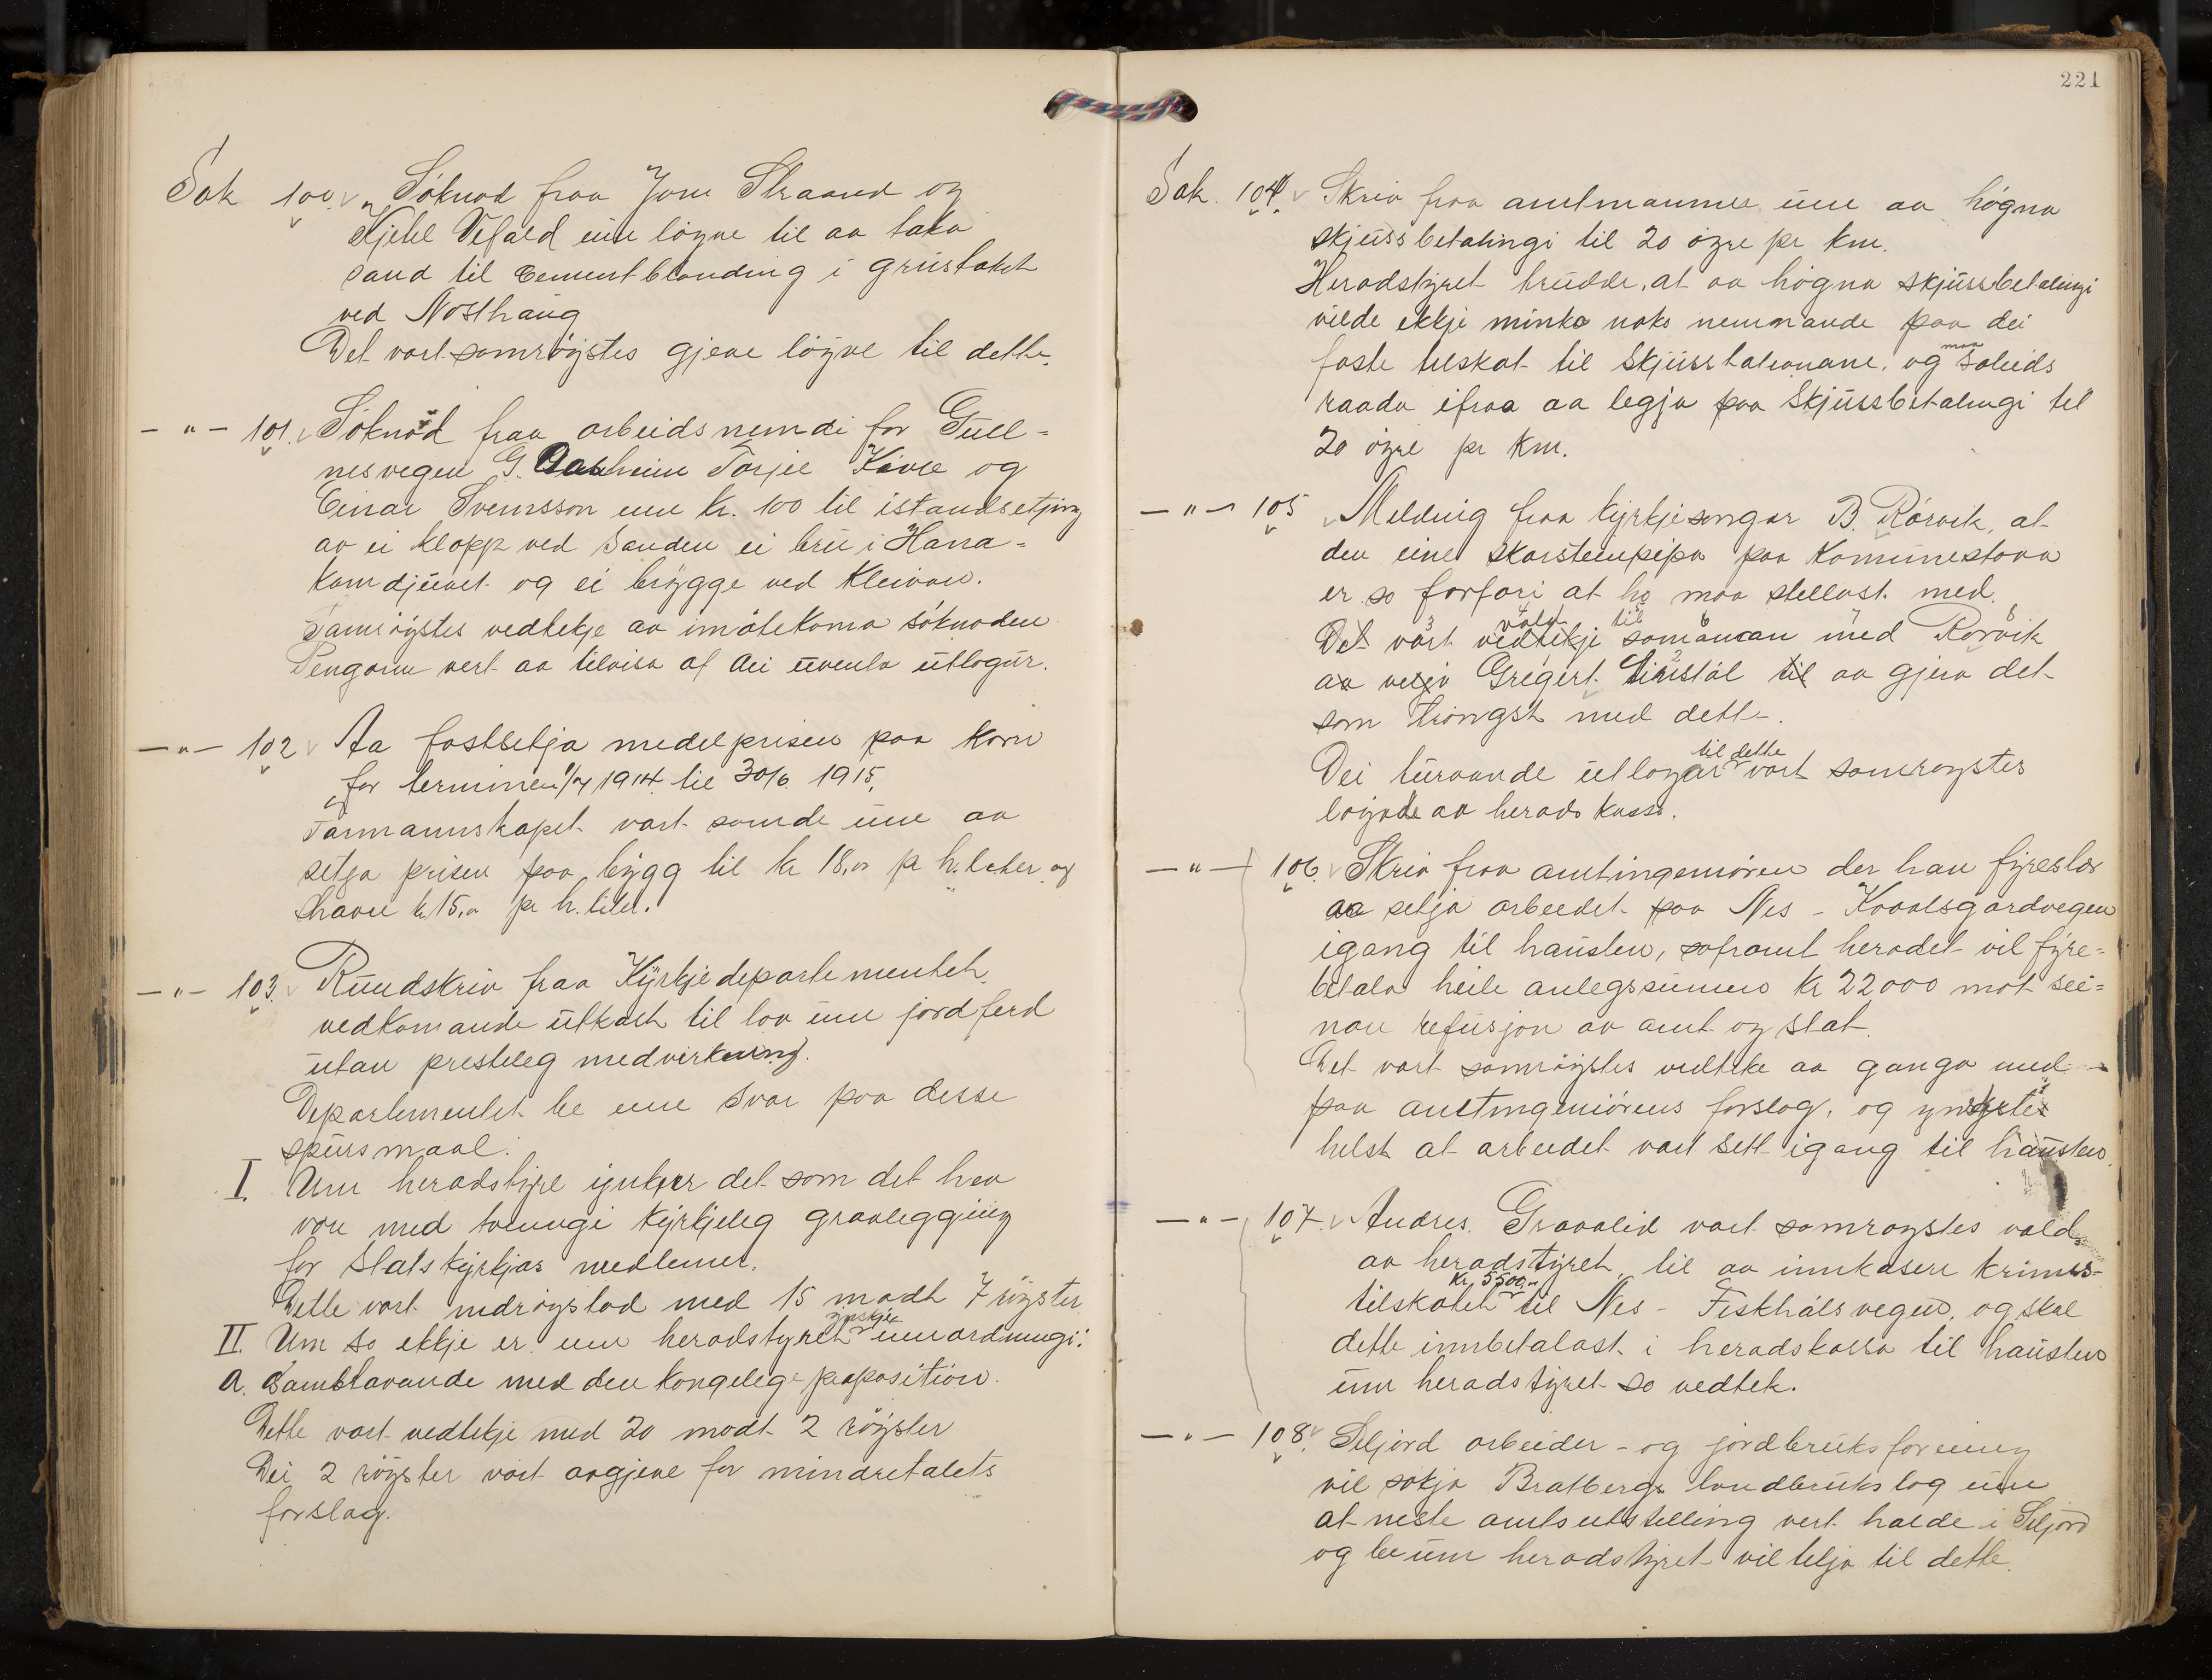 Sak 100. Söknad fraa Jon Straand og
Kjetil Vefald um löyve til aa taka
sand til Cementblanding i grustaket
ved Nosthaug
Det vart samröystes gjeve löyve til dette.
-"- 101. Söknad fraa arbeidsnemdi for Gull-
nesvegen G. Torjei Kivle og
Einar Svensson um kr. 100 til istandsetjing
av ei klopp ved Sanden ei bru i Hana-
kamdjuvet og ei brygge ved Kleivan.
Samröystes vedtekje aa imötekoma söknaden
Pengane vert aa tilvisa af dei uventa utlogur.
-"- 102 Aa fastsetja medelprisen paa korn
for terminen 1/7 1914 til 30/6 1915.
Formannskapet vart samde um aa
setja prisen paa bygg til kr 18,00 pr h.liter og
havre kr 15,00 pr h.liter.
-"- 103. Rundskriv fraa Kyrkjedepartementet
vedkomande utkast til lov um jordferd
utan presteleg medvirkning.
Departementet be um svar paa desse
spursmaal.
I. Um heradstyre ynskjer det som det hev
vore med tvungi kyrkjeleg gravlegging
for Statskyrkjas medlemer.
Dette vart nedröystad med 15 modt 7 röyster
II. Um so ekkje er um heradstyret ynskjer umordningi:
a. Samblavande med den kongelege proposition.
Dette vart vedtekje med 20 modt 2 röyster
Dei 2 röyster vart avgjeve for mindretalets
forslag.
221
Sak. 104. Skriv fraa amtmannen um aa högna
skjussbetalingi til 20 öyre pr km.
Heradstyret trudde, at aa högna skjussbetalingi
vilde ekkje minka noko nemnande paa dei
faste tilskot til Skjusstationane, og maa soleids
raada ifraa aa legja paa Skjussbetalingi til
20 öyre pr km.
-"- 105 Melding fraa kyrkjesongar B. Rörvik, at
den eine skorsteinpipa paa Komunestova
er so forfari at ho maa stellast med.
Det vart vedtekje vald til samaman med Rorvik
aa velja Gregert til aa gjera det
som trongst med dette.
Dei turvande utlogar til dette vart samröystes
löyvde av heradskassa.
-"- 106. Skriv fraa amtingeniören der han fyreslær
aa setja arbeidet paa Nes - Kvaalsgardvegen
igang til hausten, soframt heradet vil fyre-
betala heile anlegssummen kr 22000 mot sei-
nare refusjon av amt og stat.
Det vart samröystes vedteke aa ganga med
paa amtingeniörens forslag, og
helst at arbeidet vart sett igang til hausten.
-"- 107. Andres Gravalid vart samröystes vald
av heradstyret til aa innkasere
tilskotet kr 5500,- til Nes - Fiskhalsvegen, og skal
dette innbetalast i heradskassa til hausten
um heradstyret so vedtek.
-"- 108. Seljord arbeider- og jordbruksforeining
vil sökja Bratsbergs landbrukslag um
at neste amtsutstelling vert halde i Seljord
og be um heradstyret vil telja til dette.